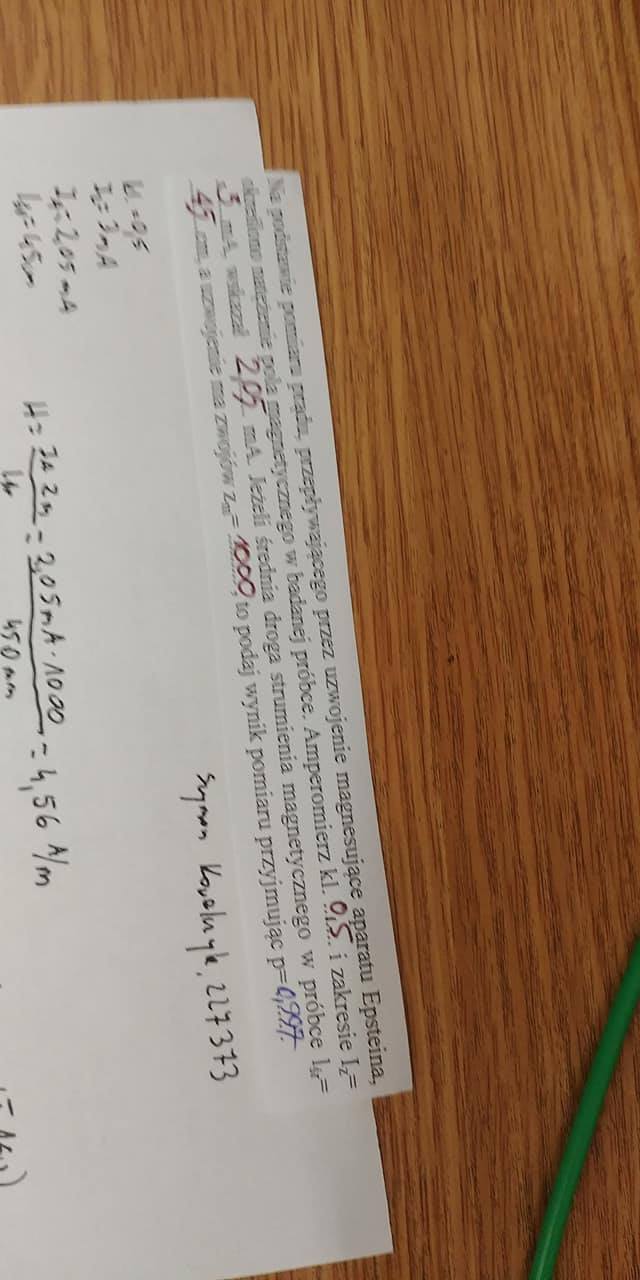 Na podstawie pomiaru prądu, przepływającego przez uzwojenie magnesujące aparatu Epsteina,
określono natężenie pola magnetycznego w badanej próbce. Amperomierz kl. 0,5 i zakresie Iz=
3 mA, wskazał 2,05 mA. Jeżeli średnia droga strumienia magnetycznego w próbce lśr=
45 cm, a uzwojenie ma zwojów zm= 1000, to podaj wynik pomiaru przyjmując p=0,997.
Szymon Kowalczyk, 227373
kl. =0,5
Iz= 3mA
= 2,05 mA
lśr=45cm
H= = 2,05mA·1000 = 4,56 A/m
lśr 450 mm